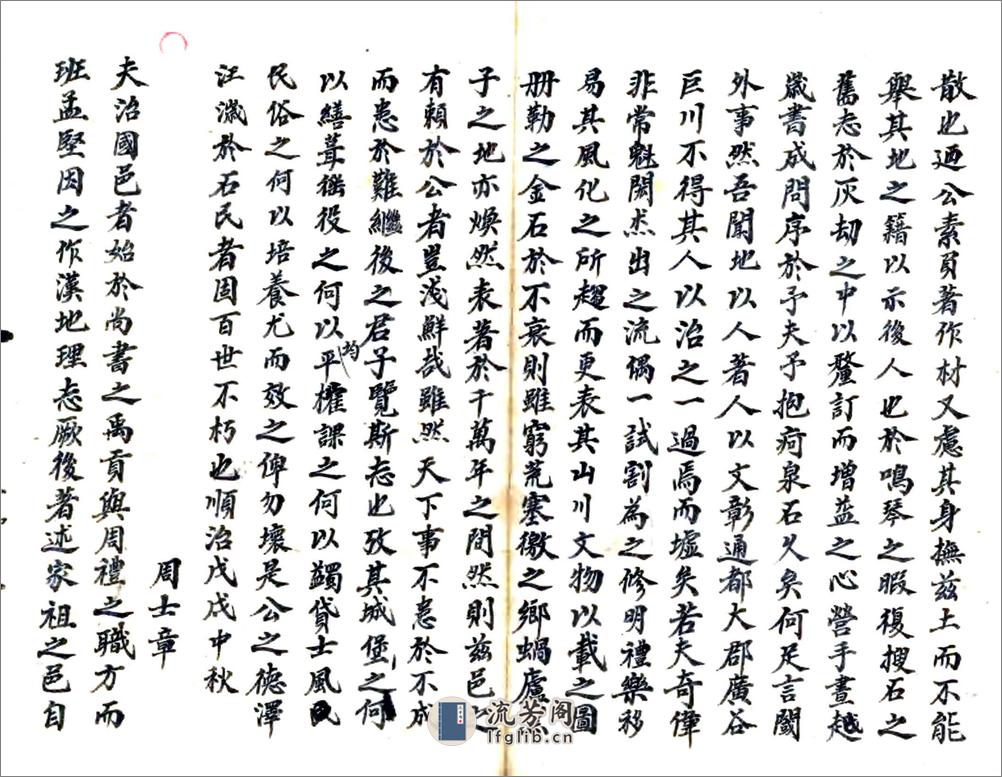 散也迺公素負著作材又慮其身撫茲土而不能
舉其地之籍以示後人也於鳴琴之暇復搜石之
舊志於灰劫之中以釐訂而增益之心營手畫越
歲書成問序於予夫予抱疴泉石久矣何足言閫
外事然吾聞地以人著人以文彰通都大郡廣谷
巨川不得其人以治之一過焉而墟矣若夫奇偉
非常魁閎杰出之流偶一試割為之修明禮樂移
易其風化之所趨而更表其山川文物以載之圖
册勒之金石於不衰則雖窮荒塞徼之鄉蝸廬黑
子之地亦煥然表著於千萬年之間然則茲邑之
有賴於公者豈淺鮮哉雖然天下事不患於不成
而患於難繼後之君子覽斯志也攷其城堡之何
以繕葺徭役之何以平均權課之何以蠲貸士風民
民俗之何以培養尤而效之俾勿壞是公之德澤
汪濊於石民者固百世不朽也順治戊戌中秋
周士章
夫治國邑者始於尚書之禹貢與周禮之職方而
班孟堅因之作漢地理志厥後著述家祖之邑自
流芳阁
lfglib.cn